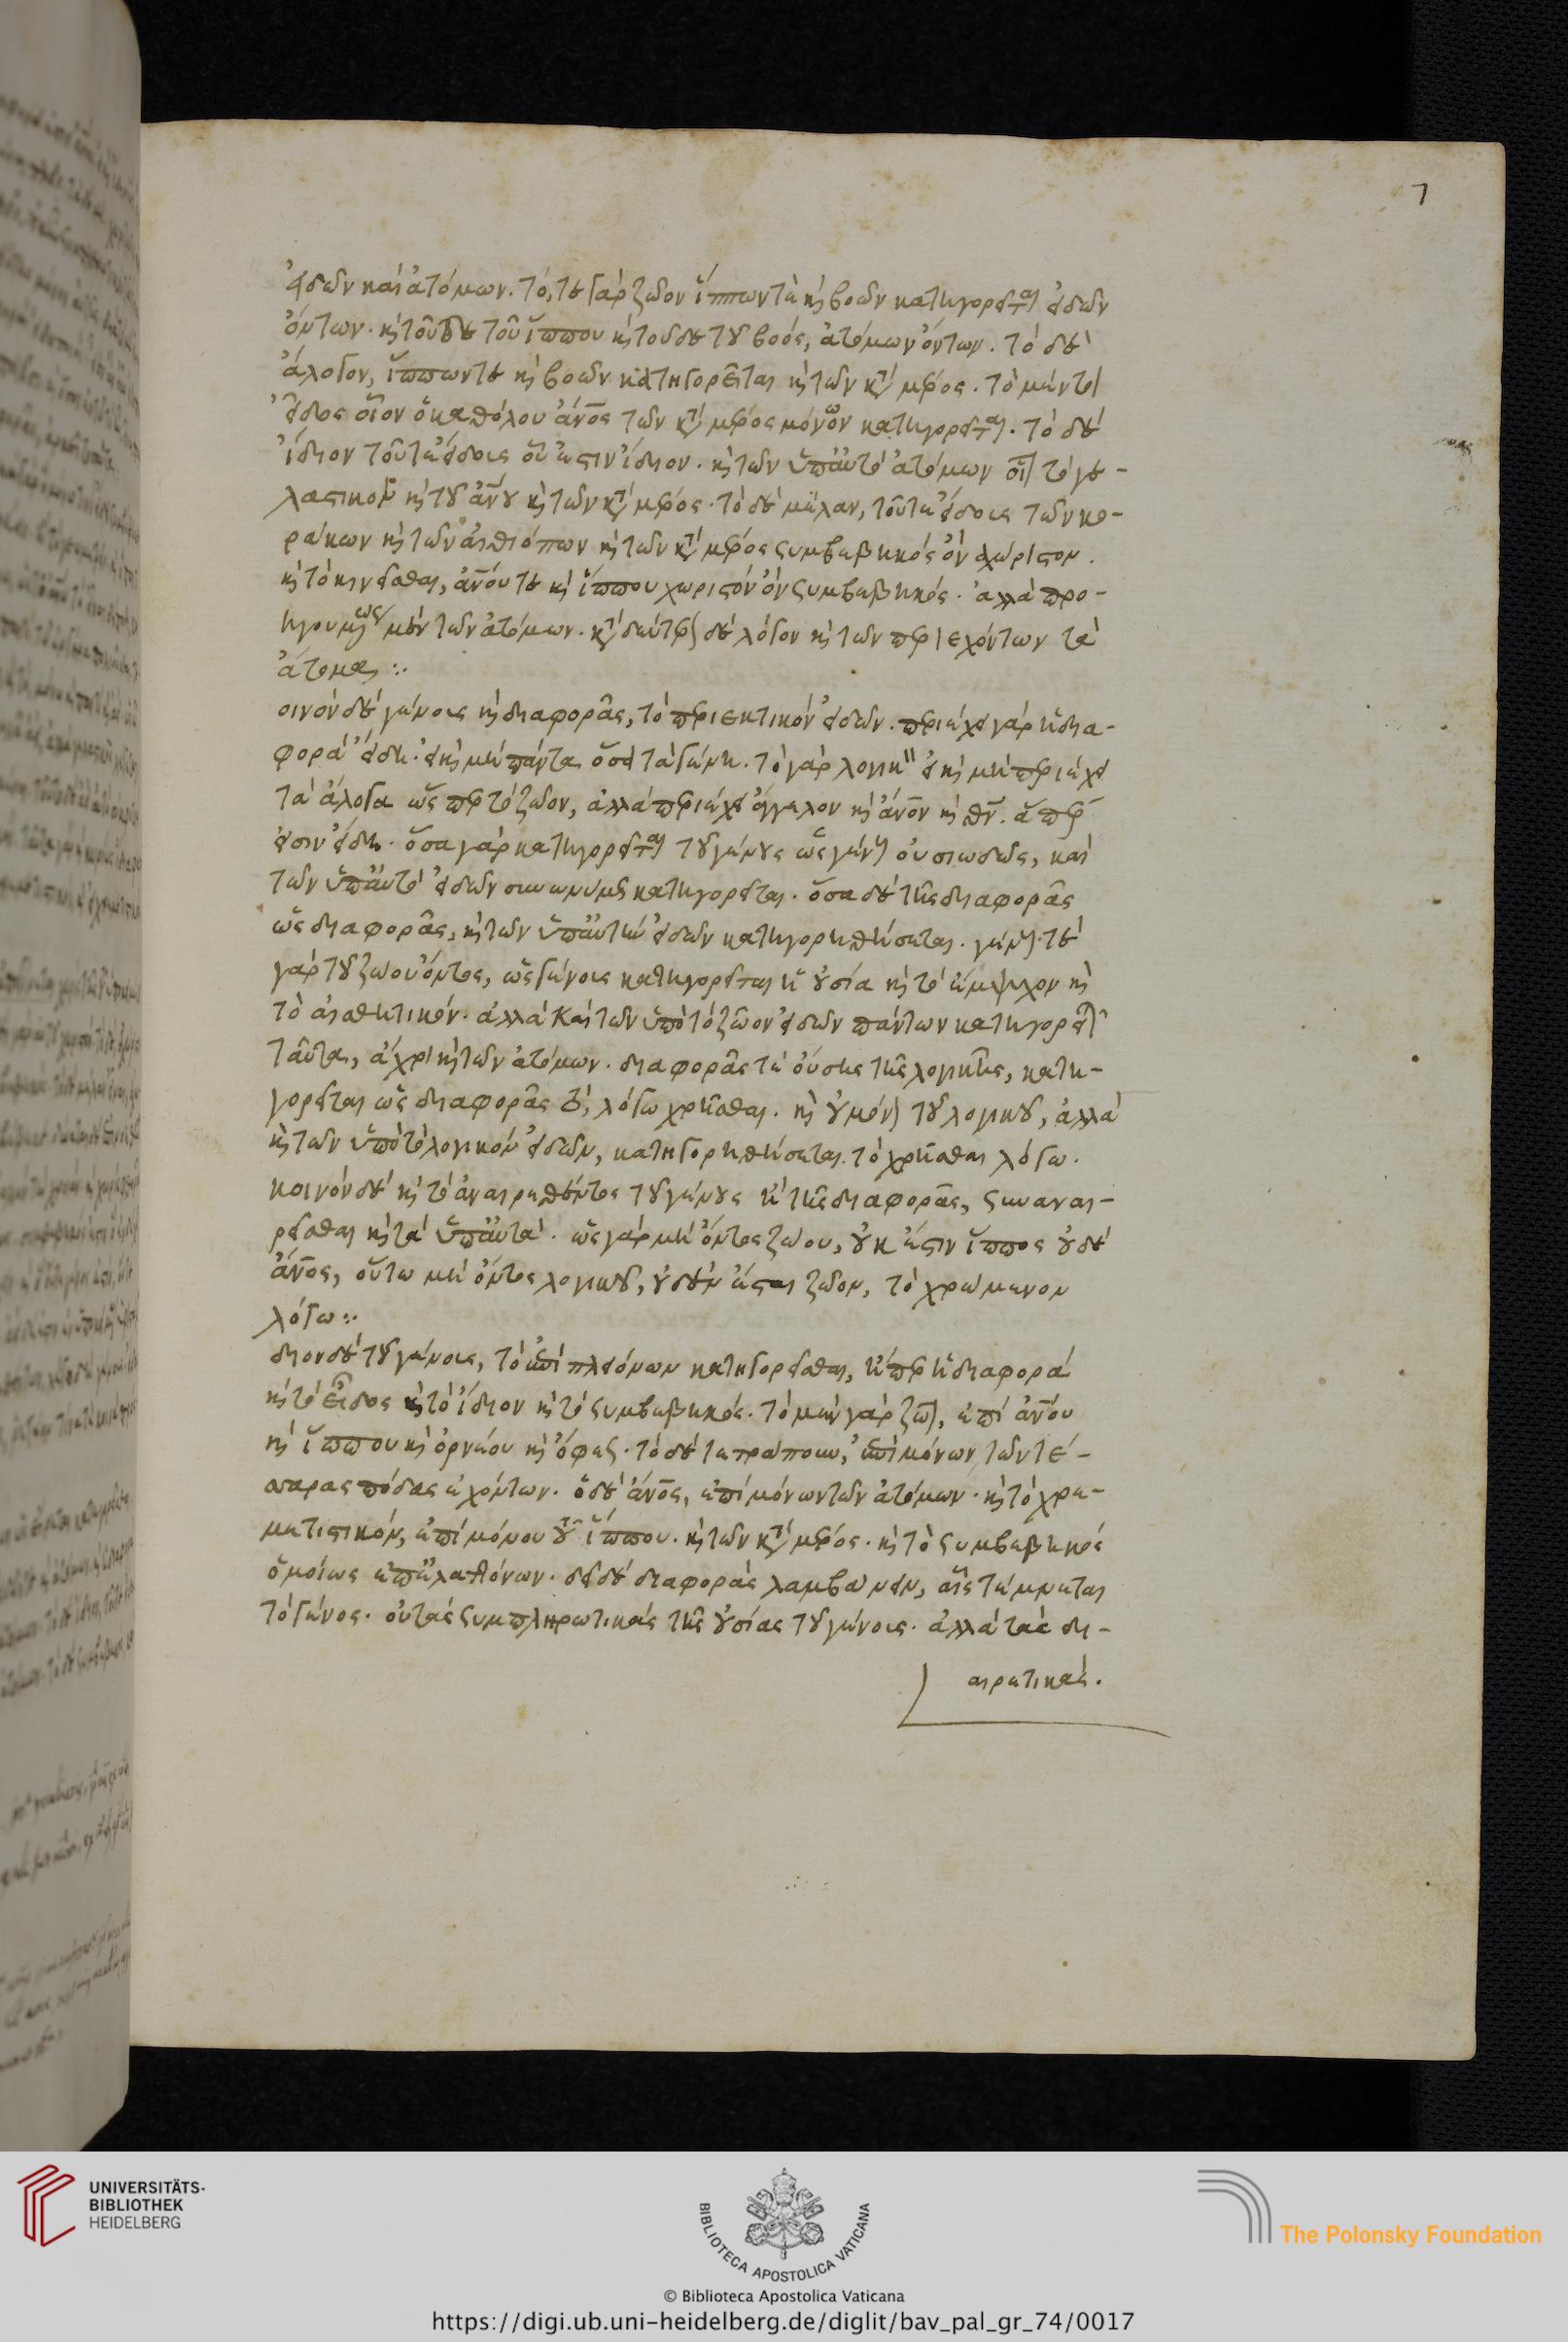 7
εἰδῶν καὶ ἀτόμων. τό, τε γὰρ ζῶον ἵππων τὲ κ̀ βοῶν κατηγορεῖται εἰδῶν
ὄντων. κ̀ τοῦδε τοῦ ἵππου κ̀ τοῦδε τοῦ βοός, ἀτόμων ὄντων. τὸ δὲ
ἄλογον, ἵππων τε κ̀ βοῶν κατηγορεῖται κ̀ τῶν κτ̀ μέρος. τὸ μέντοι
εἶδος οἷον ὁ καθόλου ἄνο̅ς τῶν κτ̀ μέρος μόνων κατηγορεῖται. τὸ δὲ
ἴδιον τοῦ τὲ εἴδους οὗ ἐστιν ἴδιον. κ̀ τῶν ὑπ' αὐτὸ ἀτόμων οἷον τὸ γε-
λαστικὸν κ̀ τοῦ ἀνο̅υ κ̀ τῶν κτ̀ μέρος. τὸ δὲ μέλαν, τοῦ τὲ εἴδους τῶν κο-
ράκων κ̀ τῶν αἰθιόπων κ̀ τῶν κτ̀ μέρος συμβεβηκὸς ὂν ἀχώριστον.
κ̀ τὸ κινεῖσθαι, ἀνο̅υ τε κ̀ ἵππου χωριστὸν ὂν συμβεβηκός. ἀλλὰ προ-
ηγουμένως μὲν τῶν ἀτόμων. κτ̀ δεύτερον δὲ λόγον κ̀ τῶν περιεχόντων τὰ
ἄτομα:·
οινὸν δὲ γένους κ̀ διαφορᾶς, τὸ περιεκτικὸν εἰδῶν. περιέχει γὰρ κ̀ ἡ δια-
φορὰ εἴδη. εἰ κ̀ μὴ πάντα ὅσα τὰ γένη. τὸ γὰρ λογικὸν εἰ κ̀ μὴ περιέχει
τὰ ἄλογα ὥσπερ τὸ ζῶον, ἀλλὰ περιέχει ἄγγελον κ̀ ἄνο̅ν κ̀ θν̅. ἅπερ
εἰσιν εἴδη. ὅσα γὰρ κατηγορεῖται τοῦ γένους ὡς γένους οὐσιωδῶς, καὶ
τῶν ὑπ' αὐτὸ εἰδῶν συνωνύμως κατηγορεῖται. ὅσα δὲ τῆς διαφορᾶς
ὡς διαφορᾶς, κ̀ τῶν ὑπ' αὐτὴν εἰδῶν κατηγορηθήσεται. γένους τὲ
γὰρ τοῦ ζώου ὄντος, ὡς γένους κατηγορεῖται ἡ οὐσία κ̀ τὸ ἔμψυχον κ̀
τὸ αἰσθητικόν. ἀλλὰ καὶ τῶν ὑπὸ τὸ ζῶον εἰδῶν πάντων κατηγορεῖται
ταῦτα, ἄχρι κ̀ τῶν ἀτόμων. διαφορᾶς τὲ οὔσης τῆς λογικῆς, κατη-
γορεῖται ὡς διαφορᾶς τὸ λόγω χρῆσθαι. κ̀ οὐ μόνον τοῦ λογικοῦ, ἀλλὰ
κ̀ τῶν ὑπὸ τὸ λογικὸν εἰδῶν, κατηγορηθήσεται τὸ χρῆσθαι λόγω.
κοινὸν δὲ κ̀ τὸ ἀναιρεθέντος τοῦ γένους ἢ τῆς διαφορᾶς, συναναι-
ρεῖσθαι κ̀ τὰ ὑπ' αὐτά. ὡς γὰρ μὴ ὄντος ζώου, οὐκ ἔστιν ἵππος οὐδὲ
ἄνο̅ς, οὕτω μὴ ὄντος λογικοῦ, οὐδὲν ἔσται ζῶον, τὸ χρώμενον
λόγω:·
διον δὲ τοῦ γένους, τὸ ἐπὶ πλειόνων κατηγορεῖσθαι, ἤπερ ἡ διαφορὰ
κ̀ τὸ εἶδος κ̀ τὸ ἴδιον κ̀ τὸ συμβεβηκός. τὸ μὲν γὰρ ζῶον, ἐπὶ ἀνο̅υ
κ̀ ἵππου κ̀ ὀρνέου κ̀ ὄφεως. τὸ δὲ τετράπουν, ἐπὶ μόνων τῶν τέ-
σσαρας πόδας ἐχόντων. ὁ δὲ ἄνο̅ς, ἐπὶ μόνων τῶν ἀτόμων. κ̀ τὸ χρε-
μετιστικὸν, ἐπὶ μόνου τοῦ ἵππου. κ̀ τῶν κτ̀ μέρος. κ̀ τὸ συμβεβηκὸς
ὁμοίως ἐπ' ἐλαττόνων. δεῖ δὲ διαφορὰς λαμβάνειν, αἷς τέμνεται
τὸ γένος. οὐ τὰς συμπληρωτικὰς τῆς οὐσίας τοῦ γένους. ἀλλὰ τὰς δι-
αιρετικάς.
UNIVERSITÄTS-
BIBLIOTHEK
HEIDELBERG
BIBLIOTECA APOSTOLICA VATICANA
The Polonsky Foundation
© Biblioteca Apostolica Vaticana
https://digi.ub.uni-heidelberg.de/diglit/bav_pal_gr_74/0017